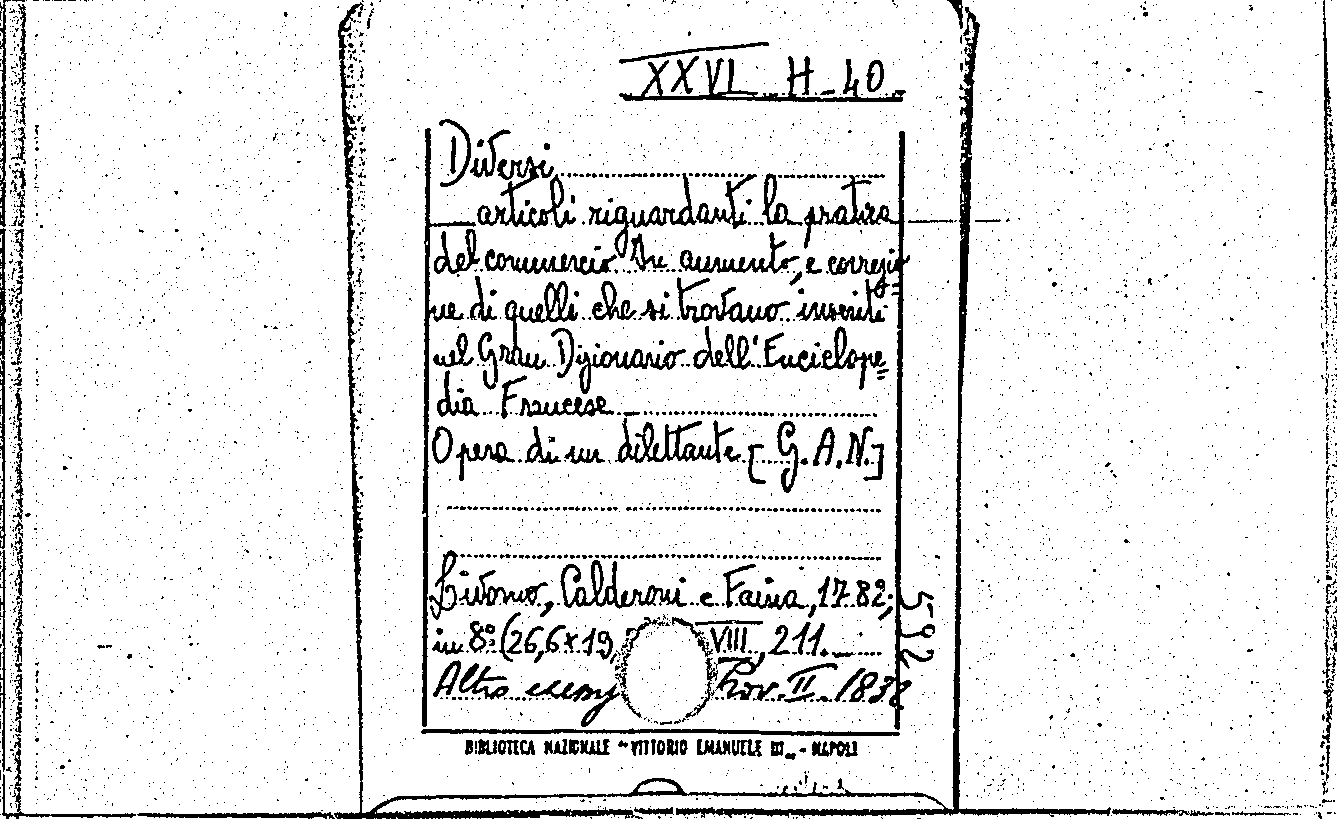 XXVI H-40
Diversi
articoli riguardanti la pratica
del commercio In aumento, e correzio=
ne di quelli che si trovano inseriti
nel Gran Dizionario dell'Enciclope=
dia Francese _
Opera di un dilettante [G.A.N.]
Livorno, Calderoni e Faina, 1782;
in 8º (26,6x19, VIII, 211.
Altro esemp Prov. II. 183
592
BIBLIOTECA NAZIONALE "VITTORIO EMANUELE III" - NAPOLI